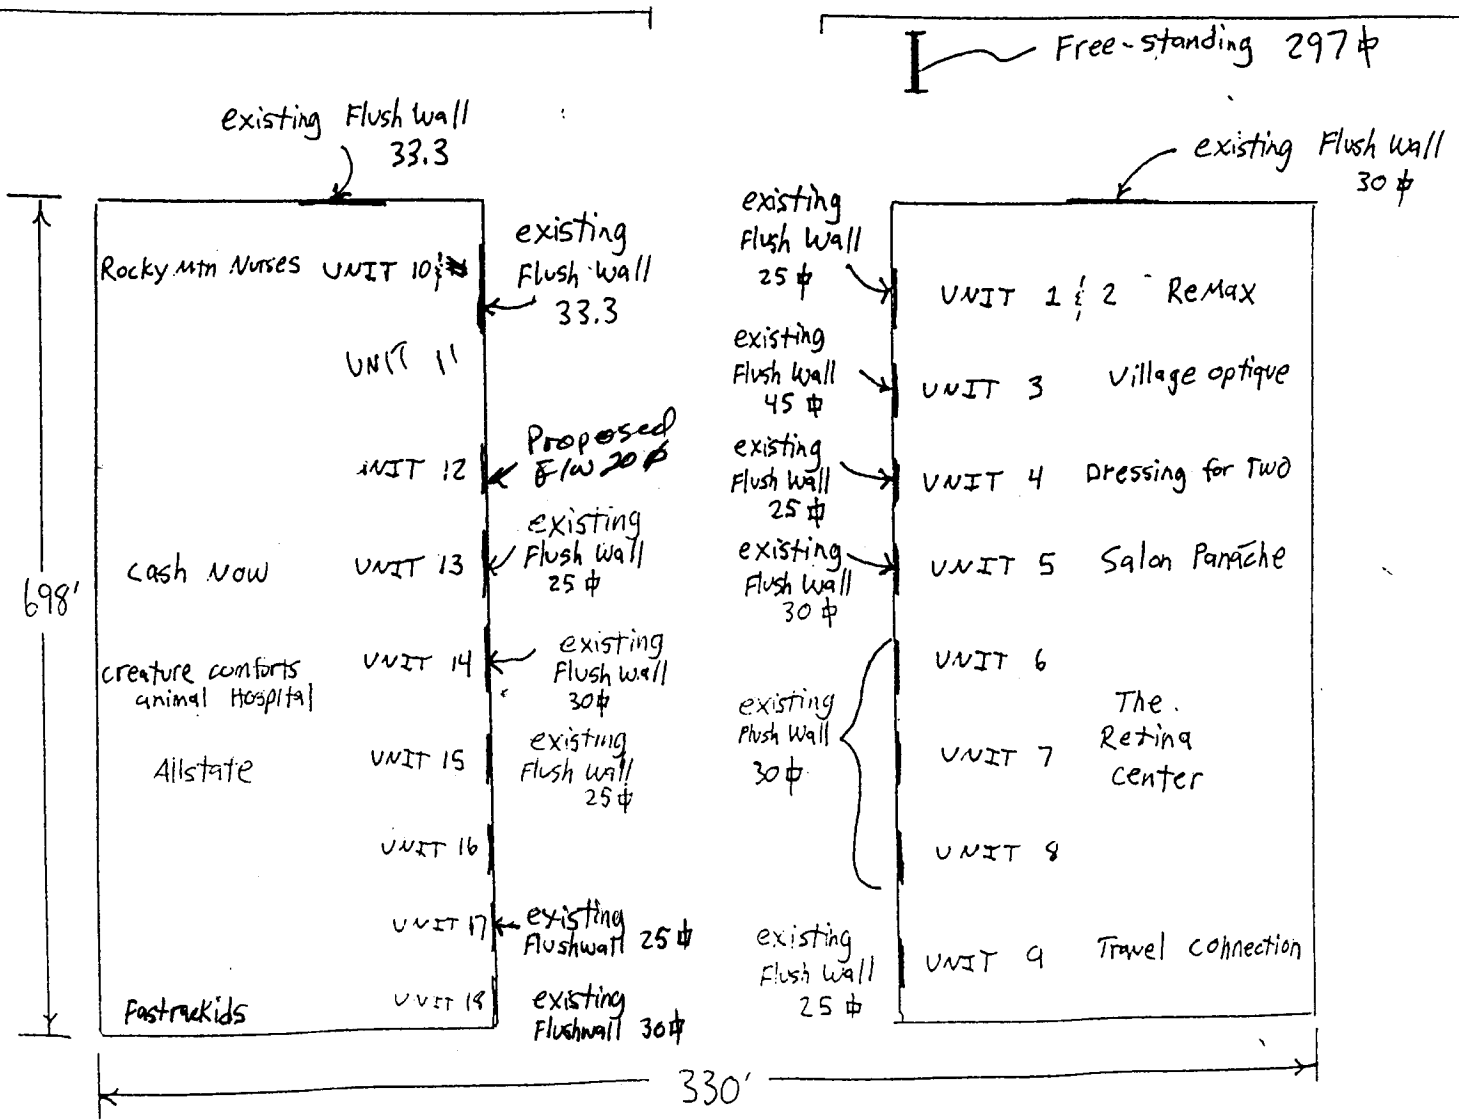 Free-standing 297 ⌽
existing Flush Wall
33.3
existing Flush Wall
30 ⌽
Rocky Mtn Nurses UNIT 10 &
existing
Flush Wall
33.3
UNIT 11
UNIT 12
Proposed
F/W 20 ⌽
Cash Now UNIT 13
existing
Flush Wall
25 ⌽
creature comforts
animal Hospital
UNIT 14
existing
Flush Wall
30 ⌽
Allstate UNIT 15
existing
Flush Wall
25 ⌽
UNIT 16
UNIT 17
existing
Flushwall 25 ⌽
Fastrackids UNIT 18
existing
Flushwall 30 ⌽
698'
330'
existing
Flush Wall
25 ⌽
UNIT 1 & 2 ReMax
existing
Flush Wall
45 ⌽
UNIT 3 Village optique
existing
Flush Wall
25 ⌽
UNIT 4 Dressing for Two
existing
Flush Wall
30 ⌽
UNIT 5 Salon Panache
existing
Flush Wall
30 ⌽
UNIT 6
UNIT 7
UNIT 8
The
Retina
Center
existing
Flush Wall
25 ⌽
UNIT 9 Travel Connection